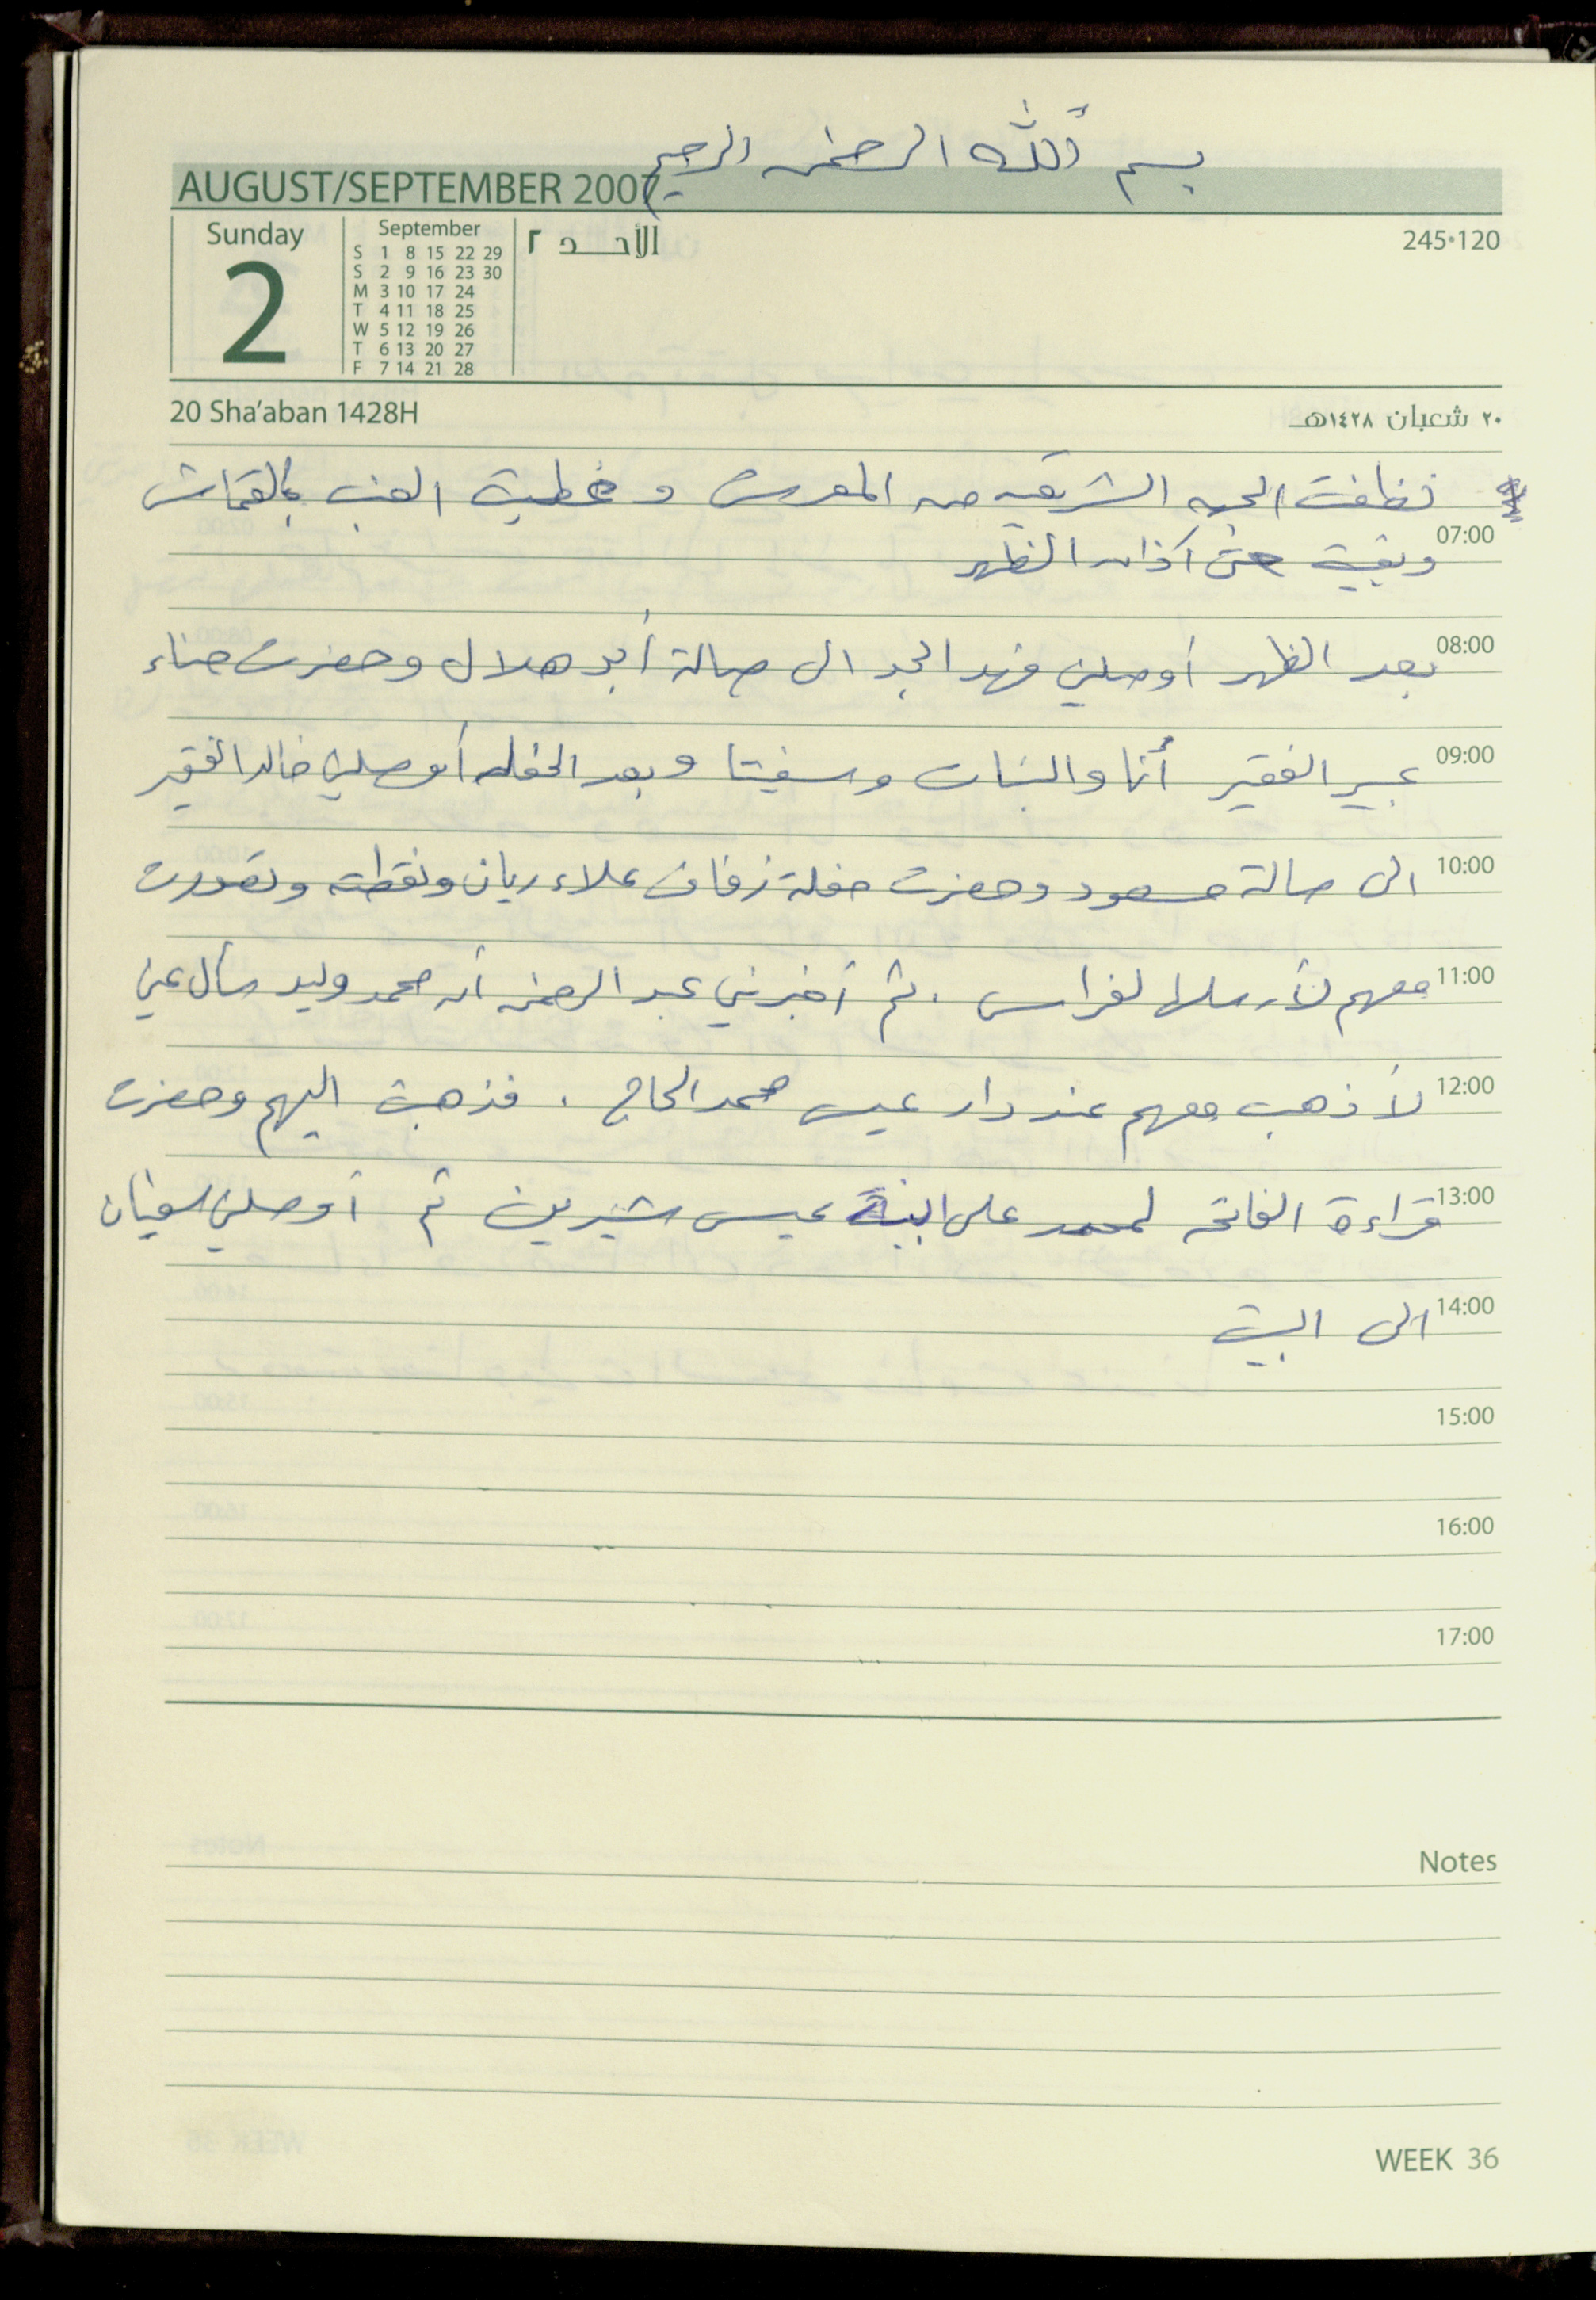 بسم الله الرحمن الرحيم
AUGUST/SEPTEMBER 2007
Sunday
2
September
S 1 8 15 22 29
S 2 9 16 23 30
M 3 10 17 24
T 4 11 18 25
W 5 12 19 26
T 6 13 20 27
F 7 14 21 28
الأحد ٢
245•120
20 Sha'aban 1428H
٢٠ شعبان ١٤٢٨هـ
نظفت الجهه الشرقيه من المعرش وغطيت العنب بالقماش
07:00
وبقيت حتى آذان الظهر
08:00
بعد الظهر أوصلني فهد الجد الى صالة أبو هلال وحضرت حناء
09:00
عبير الفقير أنا والبنات وسفيتا وبعد الحفله أوصلني خالد الفقير
10:00
الى صالة مسعود وحضرت حفلة زفاف علاء ريان ونقطته وتصورت
11:00
معهم لأرسلها لفراس . ثم أخبرني عبد الرحمن أن محمد وليد سأل عني
12:00
لأذهب معهم عند دار عيسى محمد الحاج . فذهبت اليهم وحضرت
13:00
قراءة الفاتحه لمحمد على ابنة عيسى شيرين ثم أوصلني سفيان
14:00
الى البيت
15:00
16:00
17:00
Notes
WEEK 36